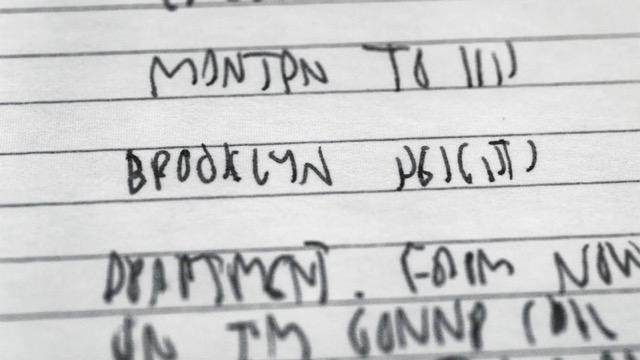 MONTON TO HIJ
BROOKLYN HEIGHTS
DPARTMENT. FROM NOW
ON I'M GONNA CALL